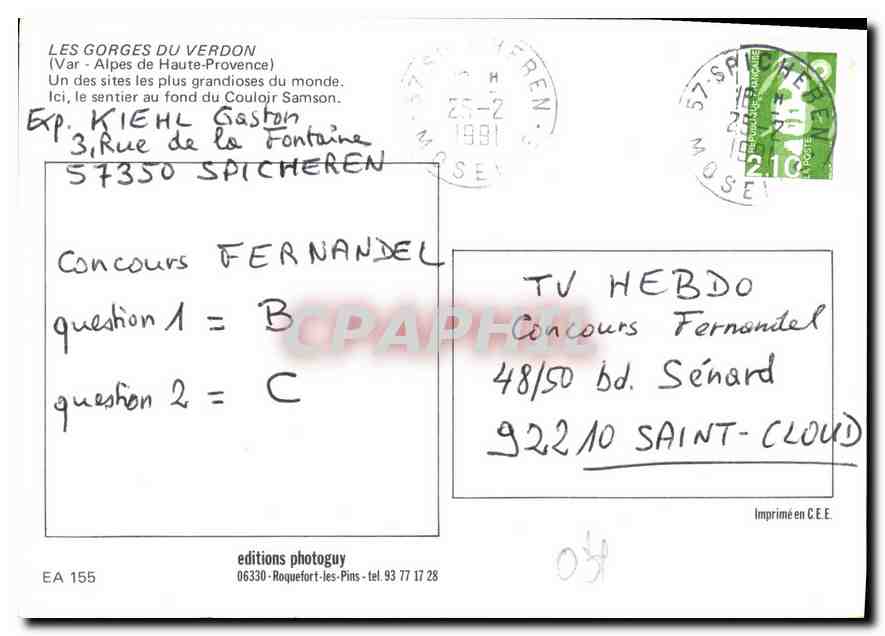 LES GORGES DU VERDON
(Var - Alpes de Haute-Provence)
Un des sites les plus grandioses du monde.
Ici, le sentier au fond du Couloir Samson.
Exp. KIEHL Gaston
3, Rue de la Fontaine
57350 SPICHEREN
Concours FERNANDEL
question 1 = B
question 2 = C
57-SPICHEREN
25-2
1991
MOSE
57-SPICHEREN
18 H
25-2
MOSE
REPUBLIQUE FRANÇAISE
2,10
LA POSTE
TV HEBDO
Concours Fernandel
48/50 bd. Sénard
92210 SAINT-CLOUD
CPAPHIL
Imprimé en C.E.E.
editions photoguy
06330 - Roquefort-les-Pins - tel. 93 77 17 28
EA 155